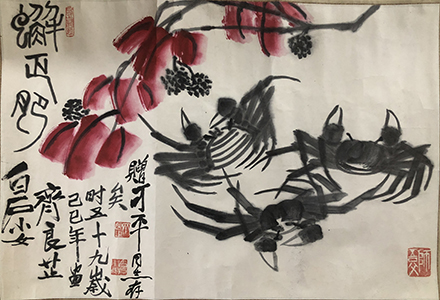 蠏正肥
白石
齊良芷
己巳年畫
时五十九歲
矣
贈才平同志存